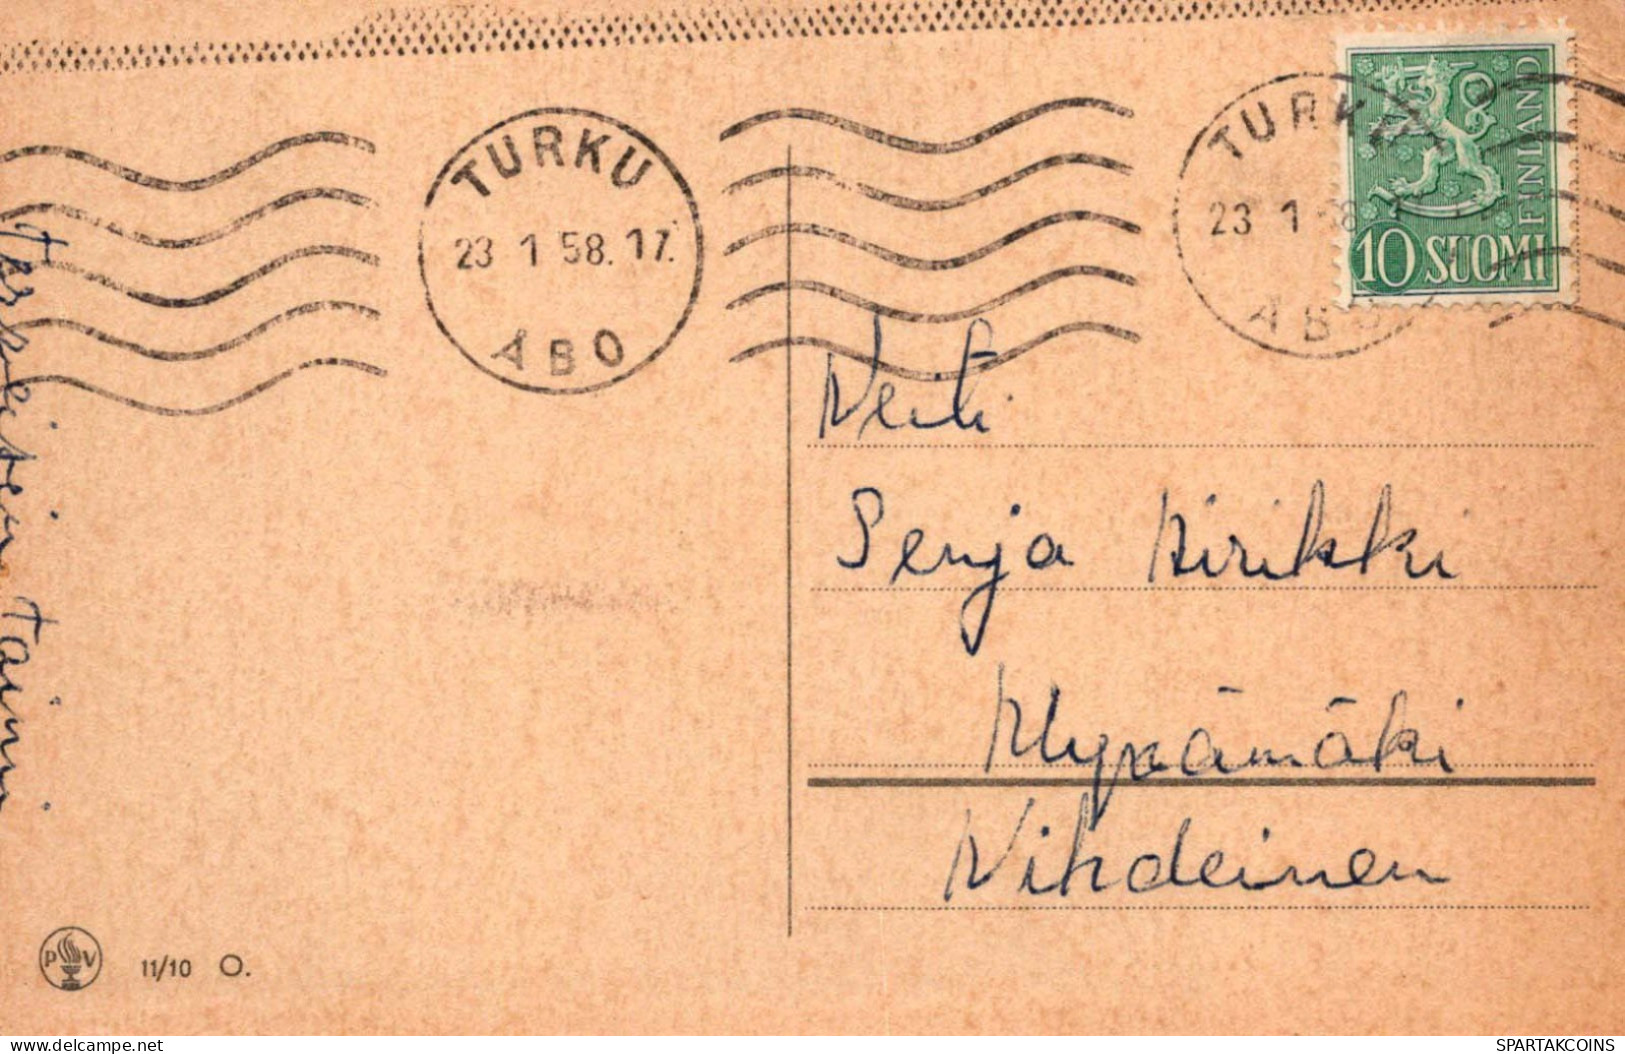 TURKU
23 1 58. 17.
ÅBO
TURKU
23 1 58
ÅBO
FINLAND
10 SUOMI
Terveisin Taimi
Neiti
Senja Hirikki
Vihdeinen
PV
11/10 O.
delcampe.net
SPARTAKCOINS